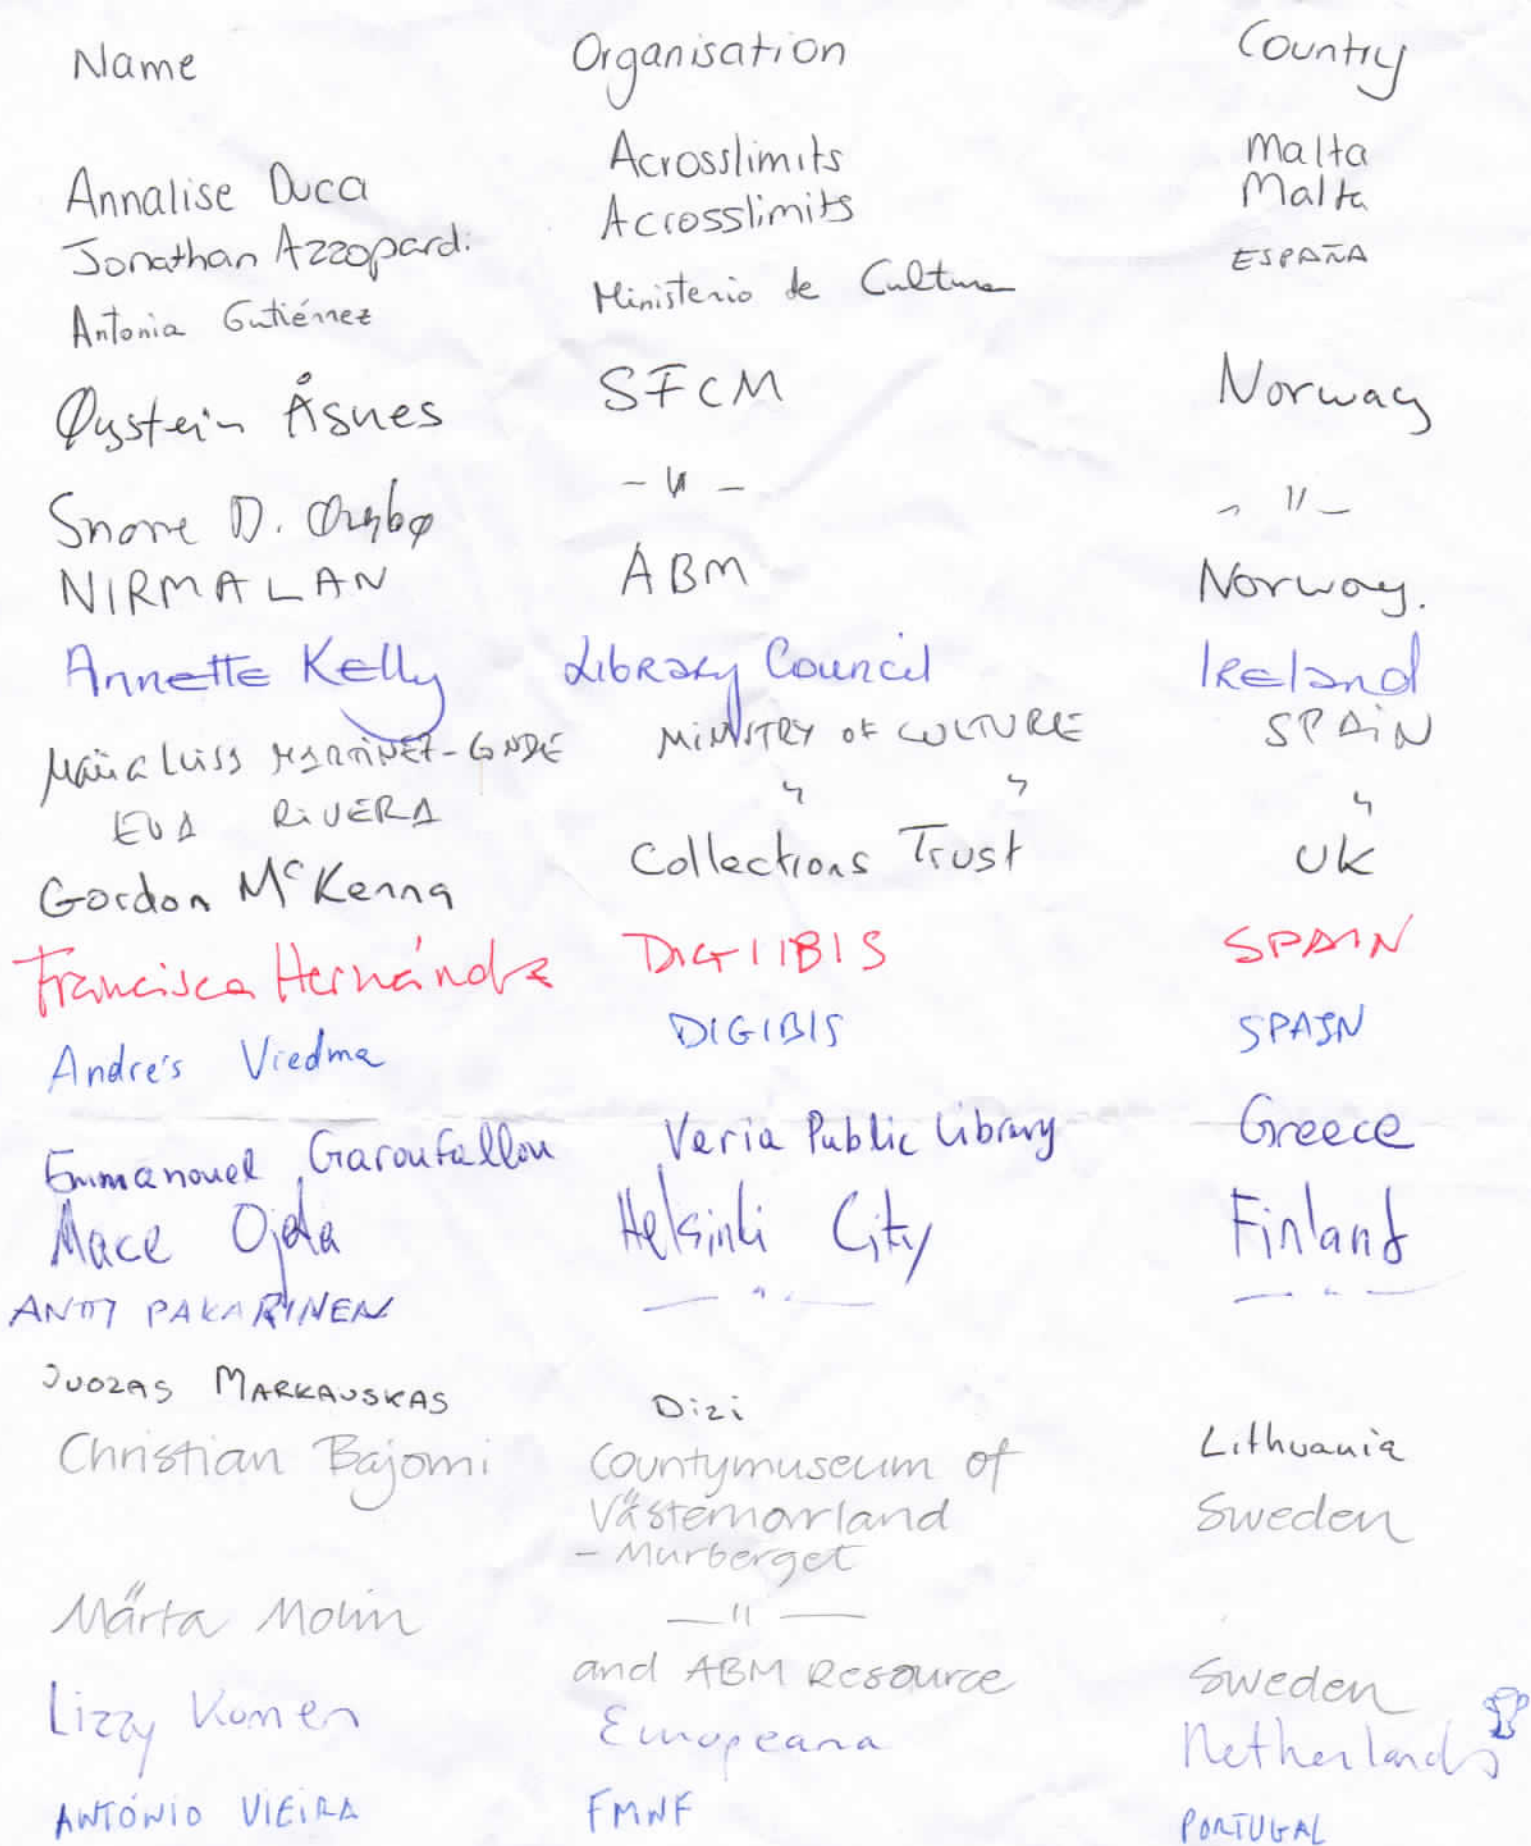 Name Organisation Country
Annalise Duca Acrosslimits Malta
Jonathan Azzopardi Acrosslimits Malta
Antonia Gutiérrez Ministerio de Cultura ESPAÑA
Øystein Åsnes SFCM Norway
Snorre D. - " - - " -
NIRMALAN ABM Norway.
Annette Kelly Library Council Ireland
María Luisa MARTÍNEZ-CONDE MINISTRY OF CULTURE SPAIN
EVA RIVERA " " "
Gordon McKenna Collections Trust UK
Francisca Hernández DIGIIBIS SPAIN
Andrés Viedma DIGIBIS SPAIN
Emmanouel Garoufallou Veria Public Library Greece
Mace Ojala Helsinki City Finland
ANTTI PAKARINEN — " — — " —
JUOZAS MARKAUSKAS Dizi Lithuania
Christian Bajomi Countymuseum of Sweden
Västernorrland
- Murberget
Märta Molin — " — Sweden
and ABM Resource
Lizzy Komen Europeana Netherlands
ANTÓNIO VIEIRA FMNF PORTUGAL